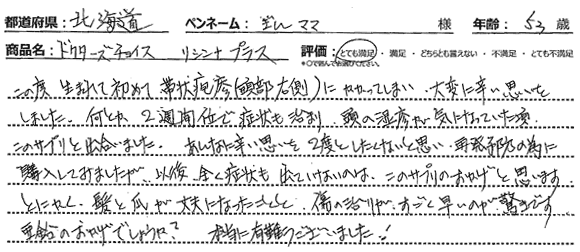 都道府県：北海道 ペンネーム：ぎんママ 様 年齢：53 歳
商品名：ドクターズチョイス リシンナプラス 評価：とても満足・満足・どちらとも言えない・不満足・とても不満足
*○で囲んでお選びください。
この度 生まれて初めて帯状疱疹(頭部右側)にかかってしまい、大変に辛い思いを
しました。何とか、2週間位で症状も治まり、頭の湿疹が気になっていた頃、
このサプリと出会いました。あんなに辛い思いを2度としたくないと思い、再発予防の為に
購入してみましたが、以後、全く症状も出ていないのは、このサプリのおかげと思います。
とにかく、髪と爪が丈夫になったことと、傷の治りが、すごく早いのが驚きです
亜鉛のおかげでしょうか？ 本当に有難うございました！